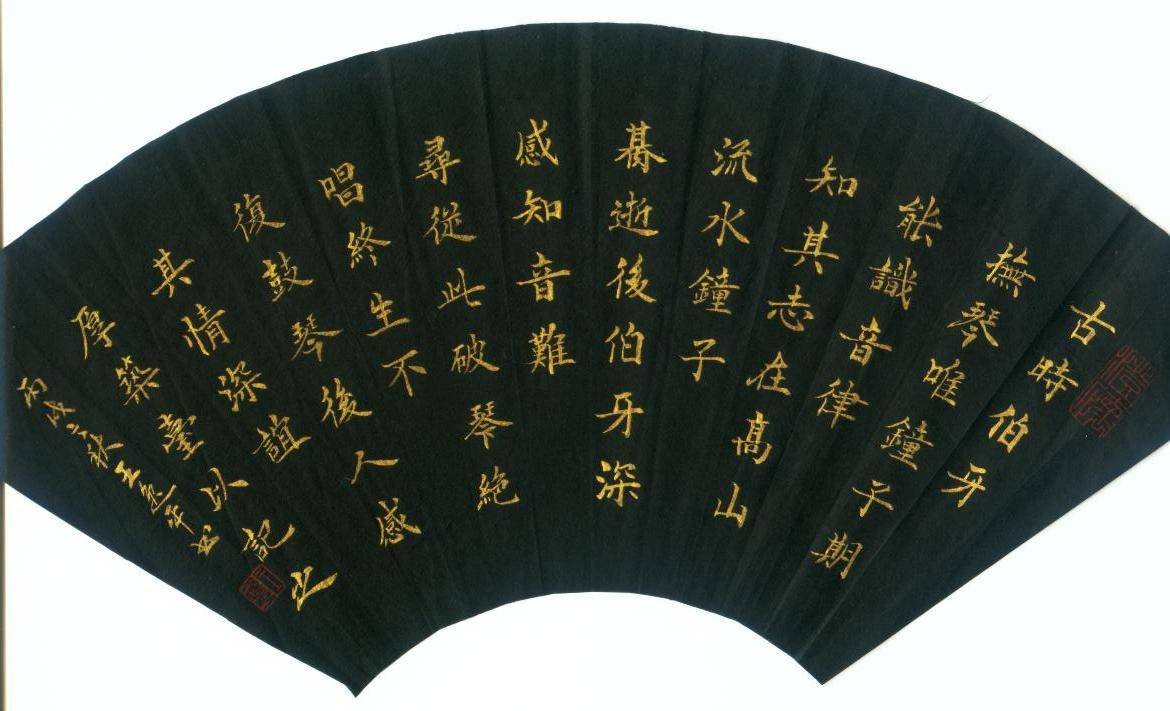 古時伯牙
撫琴唯鐘子期
能識音律
知其志在高山
流水鐘子
朞逝後伯牙深
感知音難
尋從此破琴絕
唱終生不
復鼓琴後人感
其情深誼
厚築臺以記之
丙戌之秋王